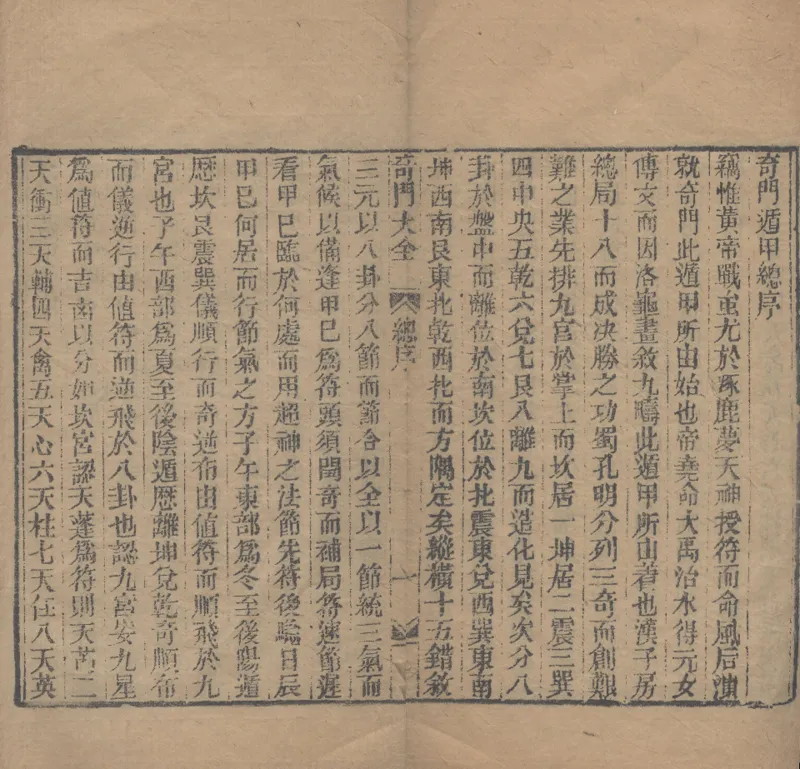 奇門遁甲總序
竊惟黃帝戰蚩尤於涿鹿夢天神授符而命風后演
就奇門此遁甲所由始也帝堯命大禹治水得元女
傳文而因洛龜畫敘九疇此遁甲所由著也漢子房
總局十八而成决勝之功蜀孔明分列三奇而創艱
難之業先排九宮於掌上而坎居一坤居二震三巽
四中央五乾六兌七艮八離九而造化見矣次分八
卦於盤中而離位於南坎位於北震東兌西巽東南
坤西南艮東北乾西北而方隅定矣縱橫十五錯敘
奇門大全 總序 一
三元以八卦分八節而節合以全以一節統三氣而
氣候以備逢甲巳為符頭須閏奇而補局符速節遲
看甲巳臨於何處而用超神之法節先符後騐日辰
甲巳何居而行節氣之方子午東部為冬至後陽遁
歷坎艮震巽儀順行而奇逆布由値符而順飛於九
宮也子午西部為夏至後陰遁歷離坤兌乾奇順布
而儀逆行由値符而逆飛於八卦也認九宮妄九星
為値符而吉凶以分如坎宮認天蓬為符則天芮二
天衝三天輔四天禽五天心六天柱七天任八天英